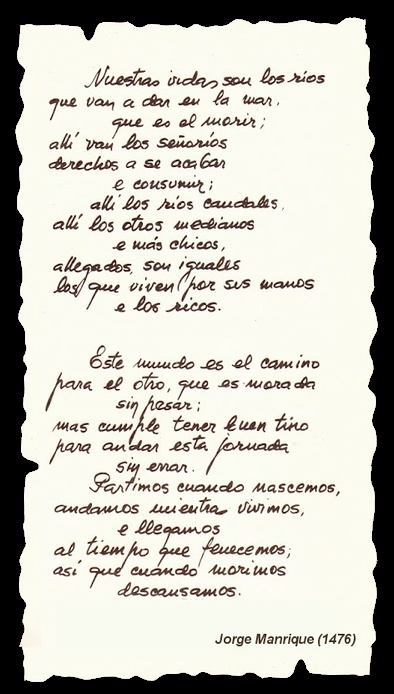 Nuestras vidas son los ríos
que van a dar en la mar,
que es el morir;
allí van los señoríos
derechos a se acabar
e consumir;
allí los ríos caudales,
allí los otros medianos
e más chicos,
allegados, son iguales
los que viven por sus manos
e los ricos.
Este mundo es el camino
para el otro, que es morada
sin pesar;
mas cumple tener buen tino
para andar esta jornada
sin errar.
Partimos cuando nascemos,
andamos mientra vivimos,
e llegamos
al tiempo que fenecemos;
así que cuando morimos
descansamos.
Jorge Manrique (1476)